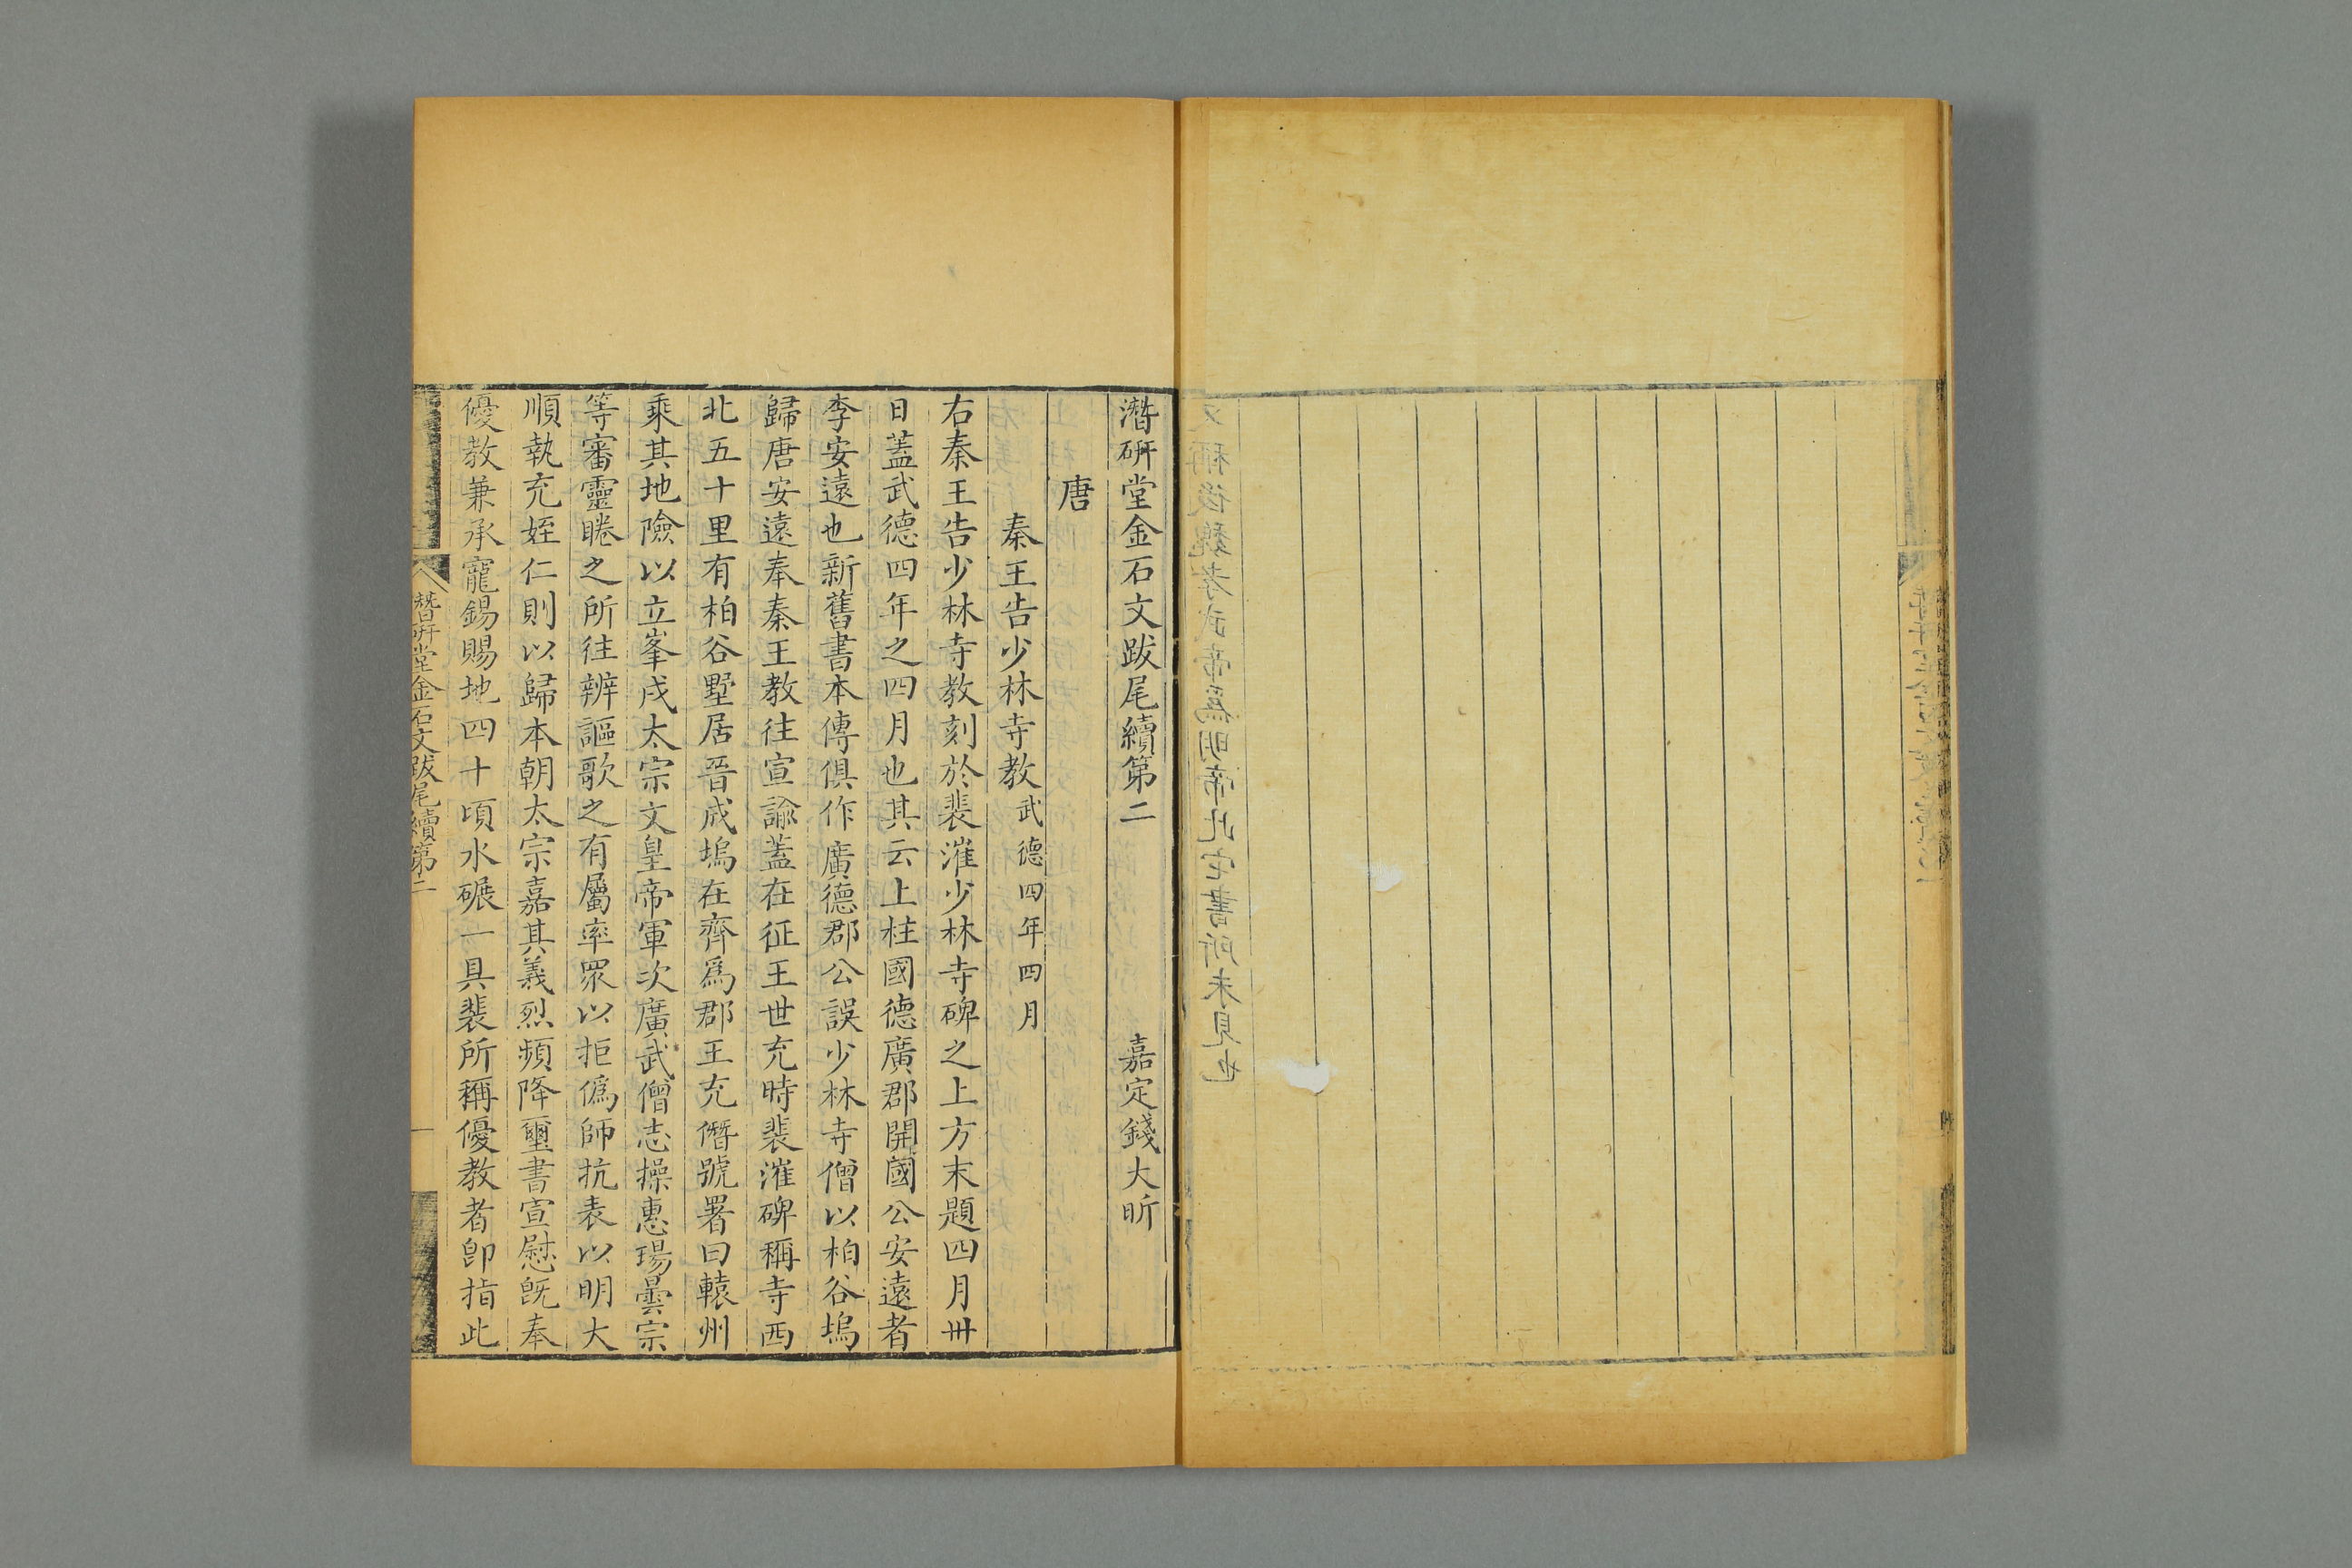 潛研堂金石文跋尾續第二 嘉定錢大昕
唐
秦王告少林寺教 武德四年四月
右秦王告少林寺教刻於裴漼少林寺碑之上方末題四月卅
日蓋武德四年之四月也其云上柱國德廣郡開國公安遠者
李安遠也新舊書本傳俱作廣德郡公誤少林寺僧以柏谷塢
歸唐安遠奉秦王教往宣諭蓋在征王世充時裴漼碑稱寺西
北五十里有柏谷墅居晉成塢在齊爲郡王充僭號署曰轅州
乘其地險以立峯戍太宗文皇帝軍次廣武僧志操惠瑒曇宗
等審靈睠之所往辨謳歌之有屬率眾以拒僞師抗表以明大
順執充姪仁則以歸本朝太宗嘉其義烈頻降璽書宣慰旣奉
優教兼承寵錫賜地四十頃水碾一具裴所稱優教者卽指此
潛研堂金石文跋尾續第二 一